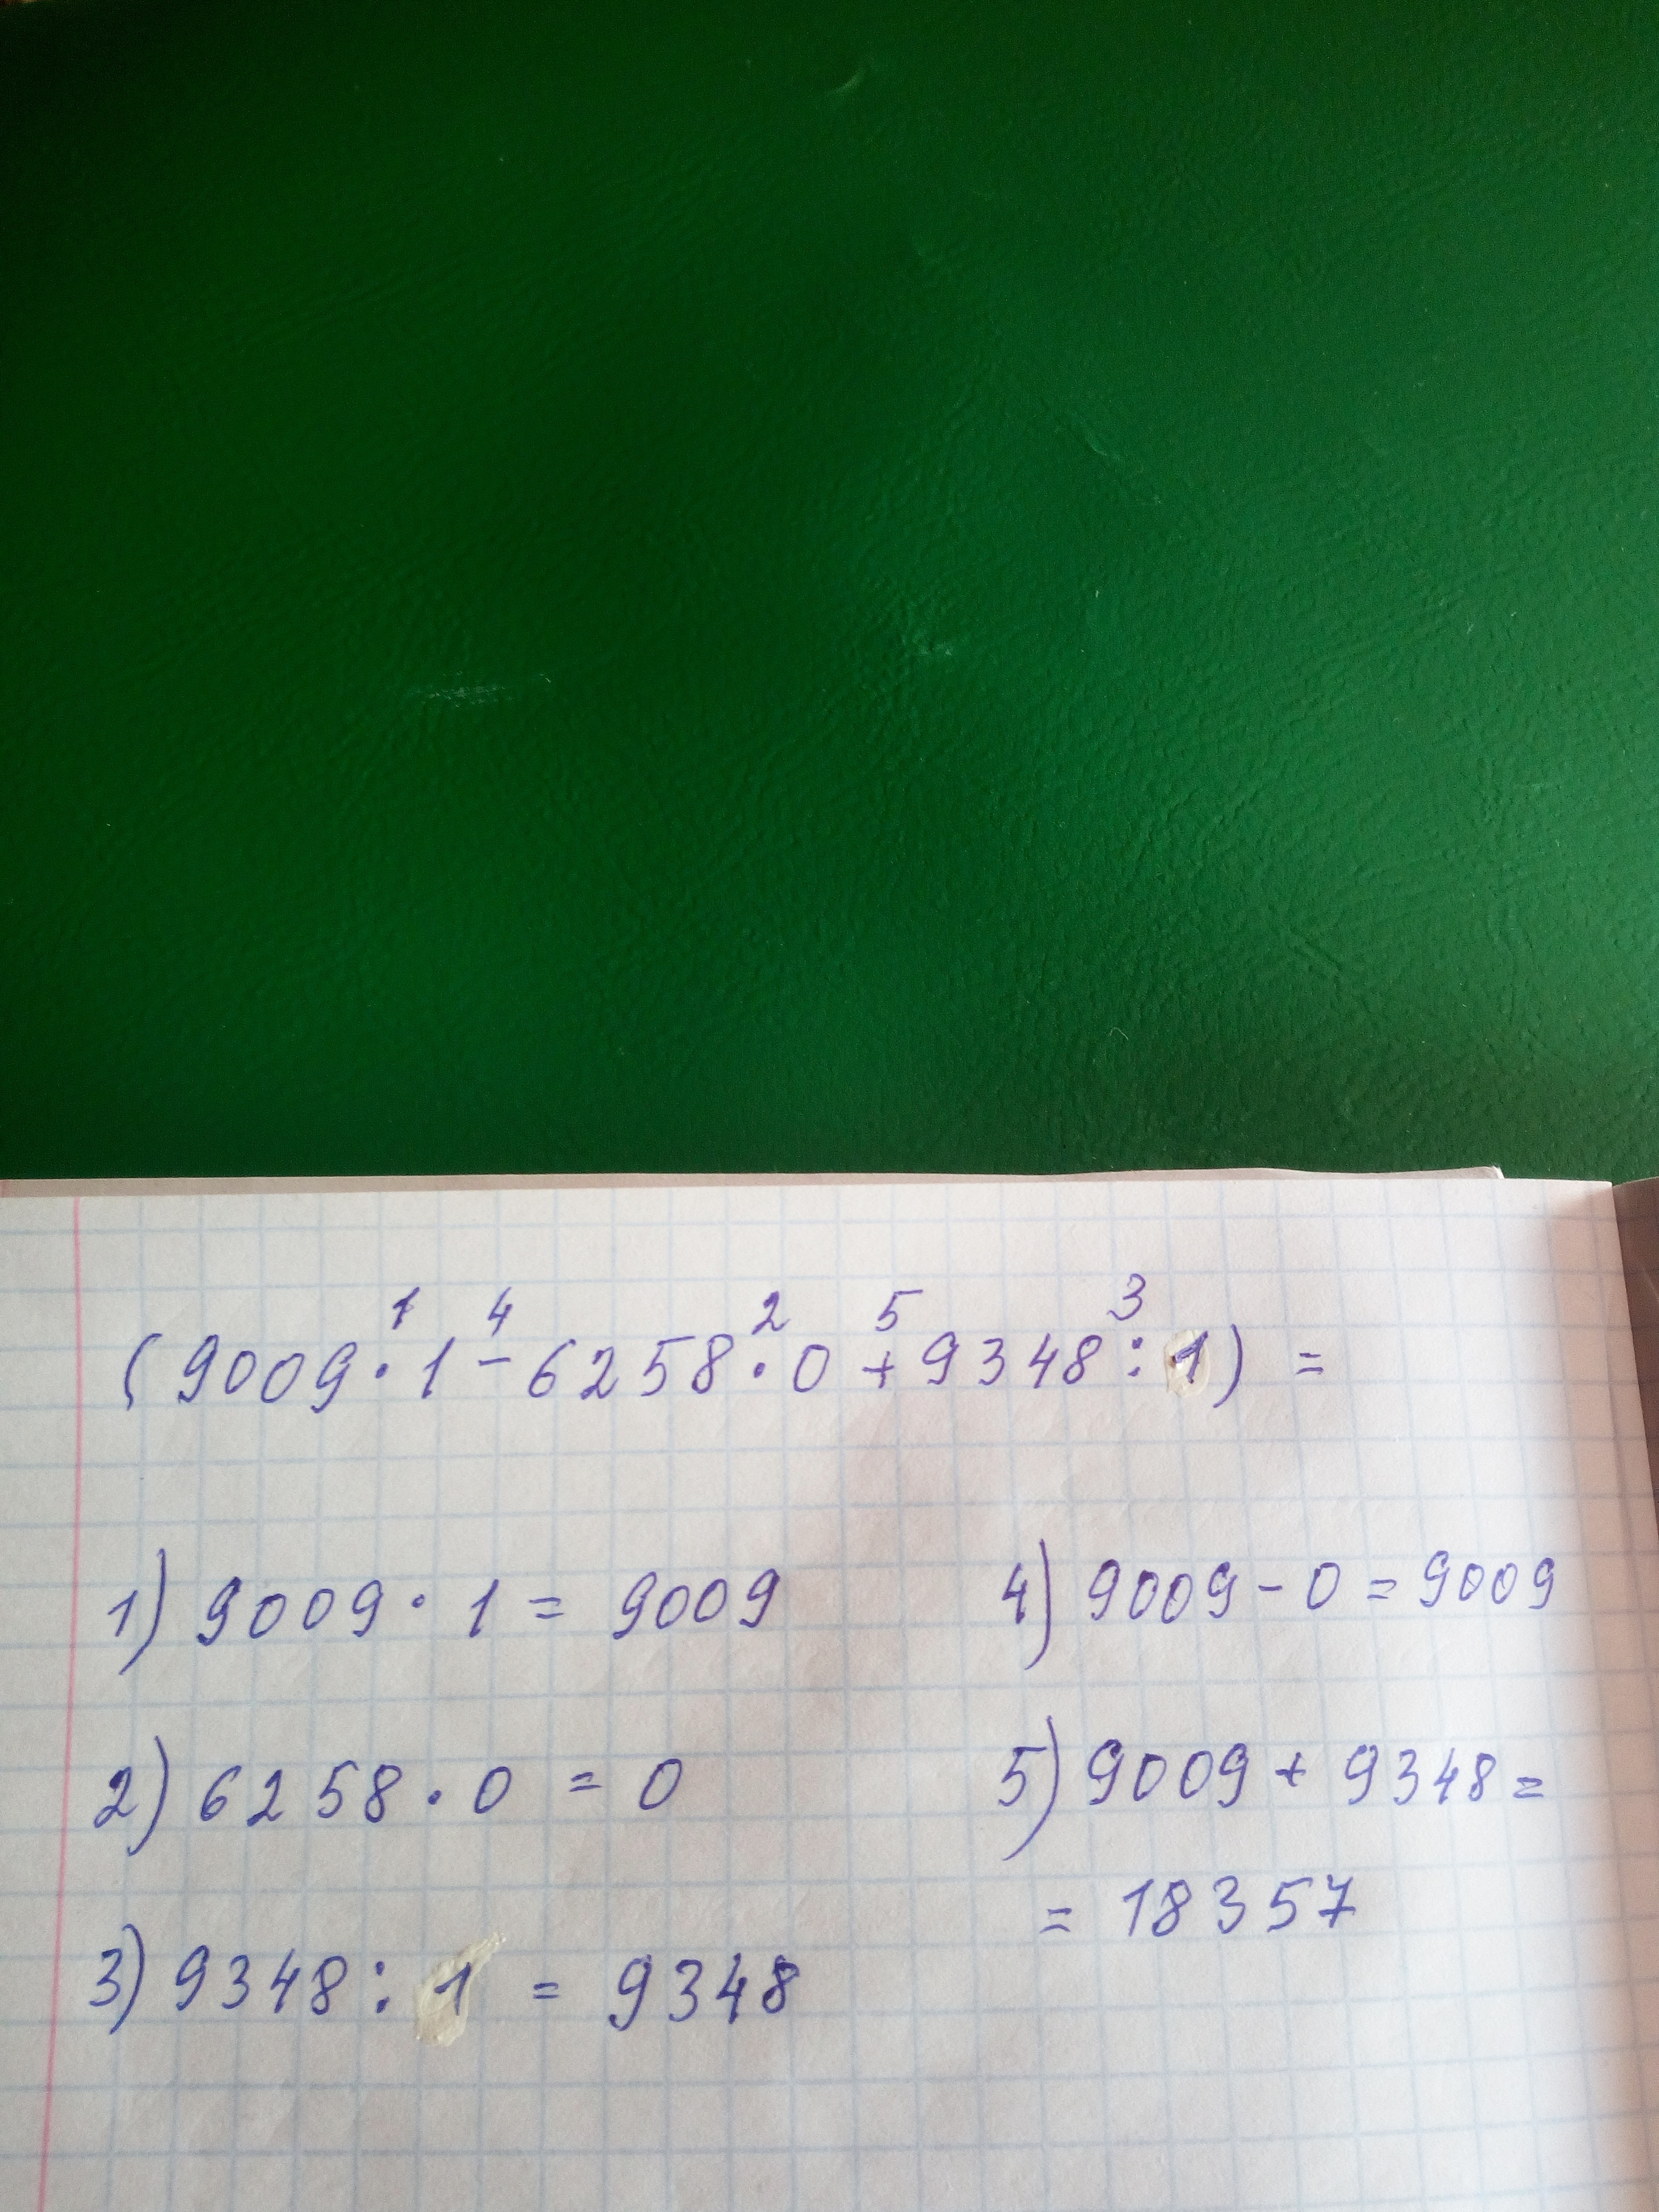 1 4 2 5 3
(9009·1-6258·0+9348:1) =
1) 9009·1=9009
2) 6258·0=0
3) 9348:1=9348
4) 9009-0=9009
5) 9009+9348=
=18357